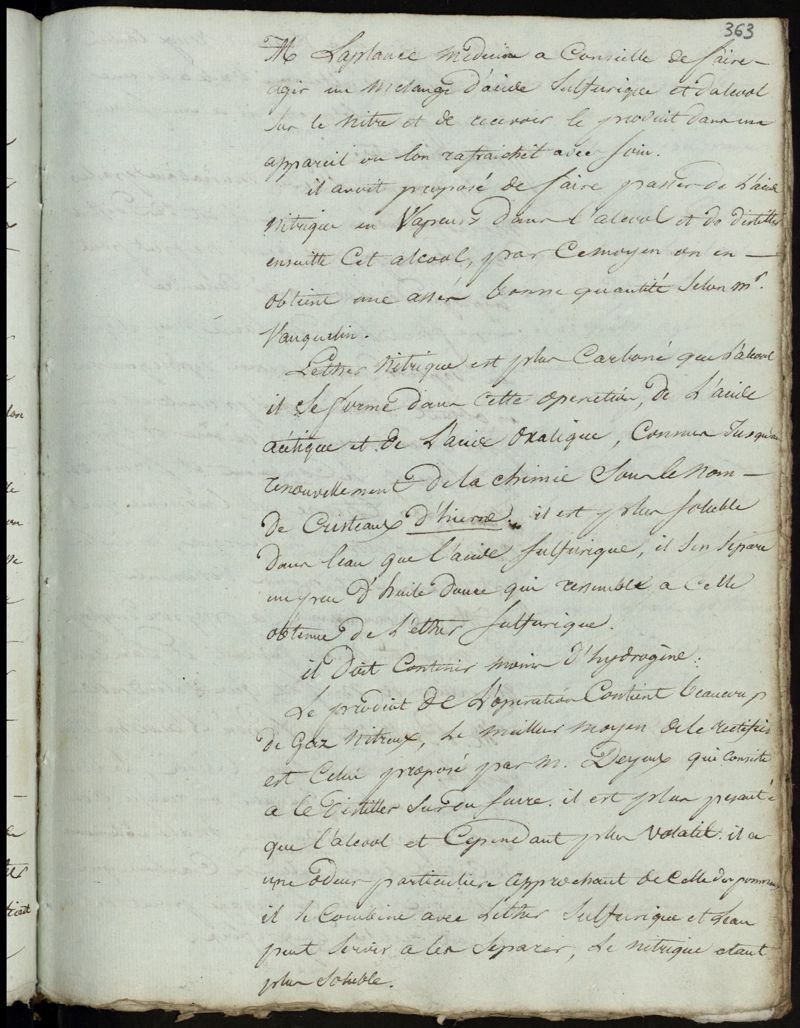 363
M Laplance medecin a Conseillé de faire
agir un melange d'acide Sulfurique et d'alcool
sur le nitre et de recevoir le produit dans un
appareil ou lon rafraichit avec soin.
il avoit proposé de faire passer de L'acide
nitrique en Vapeurs dans l'alcool et de distiller
ensuitte Cet alcool, par Ce moyen on en
obtient une assés bonne quantité Selon mr.
Vauquelin.
L'ether Nitrique est plus Carboné que L'alcool
il Se forme dans Cette operation, de L'acide
acétique et de L'acide Oxalique, Connu Jusqu'au
renouvellement de la chimie Sous le nom
de Cristeaux d'hierne. il est plus Soluble
dans leau que l'acide Sulfurique, il s'en Separe
un peu d'huile douce qui resemble a Celle
obtenue de L'ether Sulfurique.
il Doit Contenir moins d'hydrogène.
Le produit de L'operation Contient beaucoup
de Gaz Nitreux, Le meilleur moyen de le rectifier
est Celui proposé par m. Deyeux qui Consiste
a le Distiller Sur du Sucre. il est plus pesant
que l'alcool et Cependant plus Volatil. il a
une Odeur particuliere approchant de Celle des pommes
il Se Combine avec L'ether Sulfurique et Leau
peut Servir a les Separer, Le nitrique etant
plus Soluble.